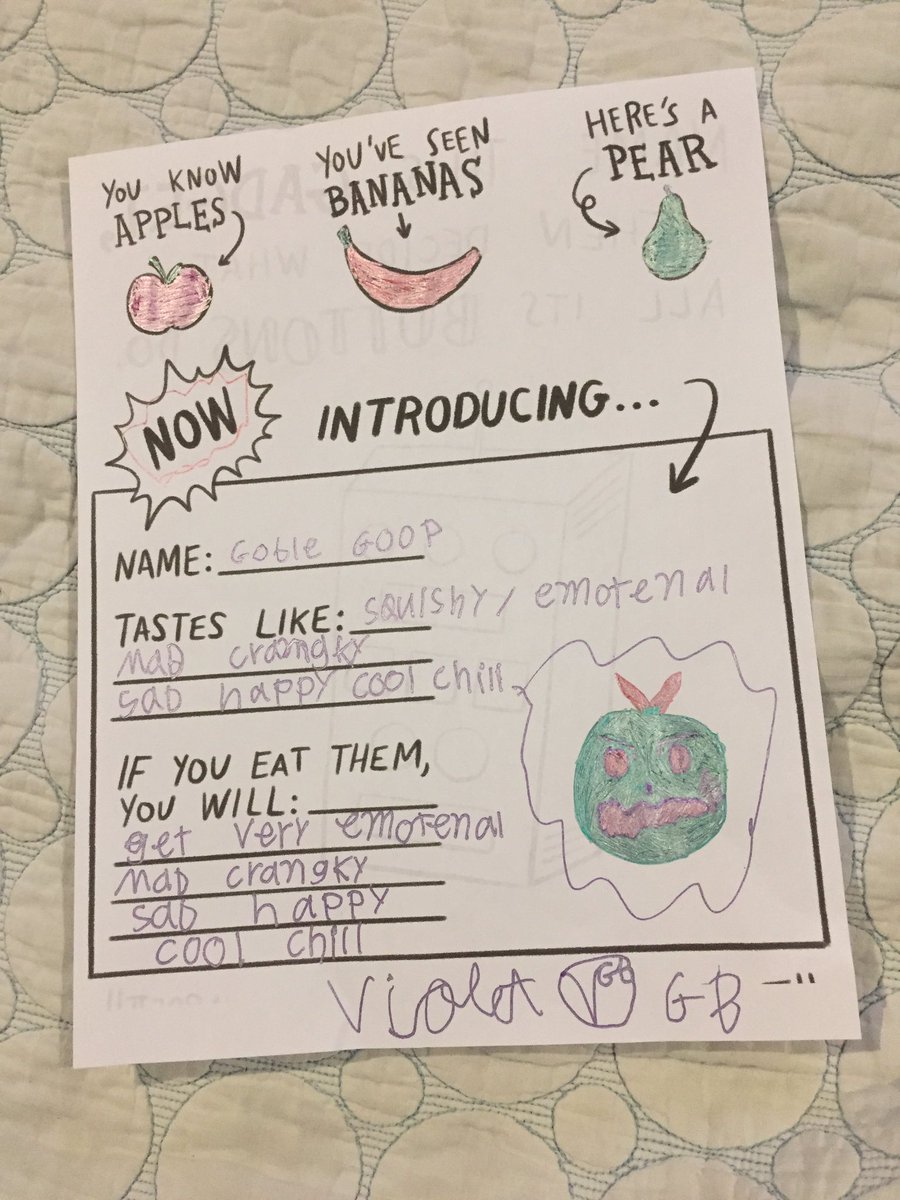 YOU KNOW
APPLES
YOU'VE SEEN
BANANAS
HERE'S A
PEAR
NOW
INTRODUCING...
NAME: Goble GOOP
TASTES LIKE: squishy/ emotenal
MAD crangky
sad happy cool chill
IF YOU EAT THEM,
YOU WILL:
get very emotenal
MAD crangky
sad happy
cool chill
Violet GB GB